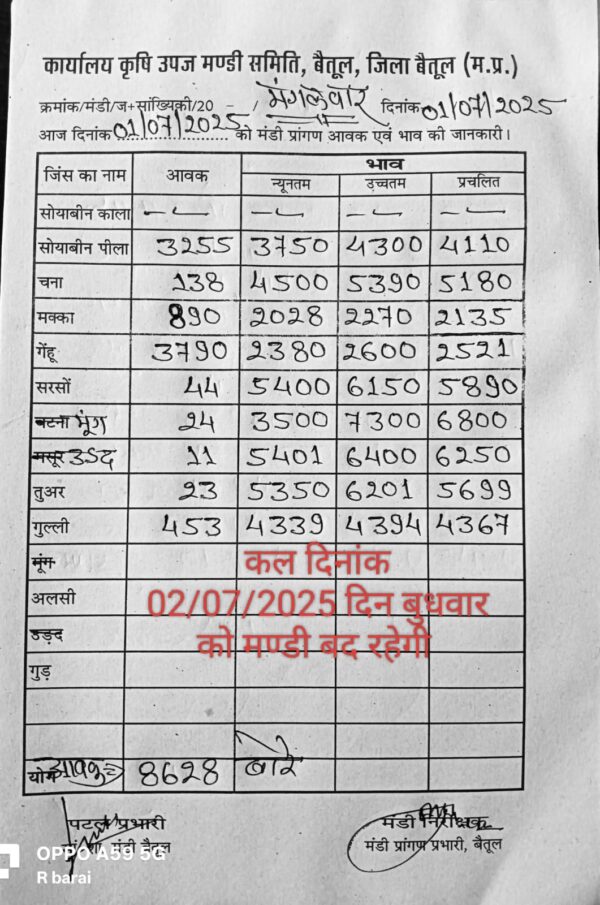 कार्यालय कृषि उपज मण्डी समिति, बैतूल, जिला बैतूल (म.प्र.)
क्रमांक/मंडी/ज+सांख्यिकी/20 - / मंगलवार दिनांक 01/07/2025
आज दिनांक 01/07/2025 को मंडी प्रांगण आवक एवं भाव की जानकारी।
जिंस का नाम आवक भाव
न्यूनतम उच्चतम प्रचलित
सोयाबीन काला -- -- -- --
सोयाबीन पीला 3255 3750 4300 4110
चना 138 4500 5390 5180
मक्का 890 2028 2270 2135
गेंहू 3790 2380 2600 2521
सरसों 44 5400 6150 5890
बटना मूंग 24 3500 7300 6800
मसूर उड़द 11 5401 6400 6250
तुअर 23 5350 6201 5699
गुल्ली 453 4339 4394 4367
मूंग
अलसी
उड़द
गुड़
कल दिनांक
02/07/2025 दिन बुधवार
को मण्डी बद रहेगी
योग आवक 8628 बोरे
पटल प्रभारी मंडी निरीक्षक
मंडी बैतूल मंडी प्रांगण प्रभारी, बैतूल
OPPO A59 5G
R barai